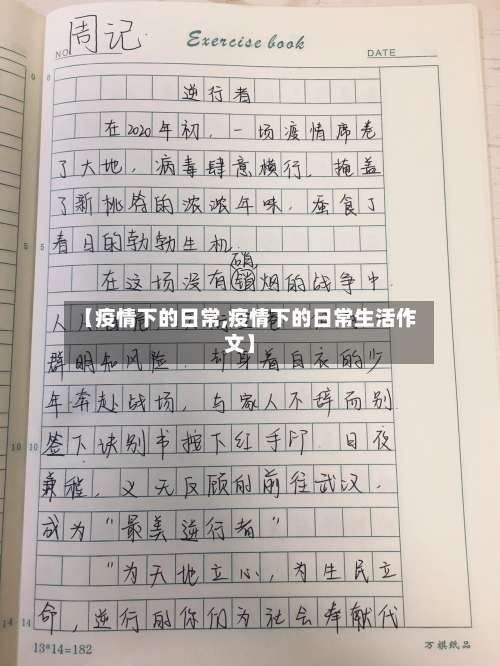 周记
NO
Exercise book
DATE
逆行者
在2020年初，一场疫情席卷
了大地，病毒肆意横行，掩盖
了新桃符的浓浓年味，蚕食了
春日的勃勃生机.
硝
在这场没有锁烟的战争中
人
【疫情下的日常,疫情下的日常生活作
文】
群明知风险，却身着白衣的少
年奔赴战场，与家人不辞而别.
签下诀别书按下红手印.日夜
兼程，义无反顾的前往武汉，
成为"最美逆行者"
"为天地立心，为生民立
命，逆行的你们为社会奉献代
0 0
5 5
10 10
14 14
13*14=182
万祺纸品